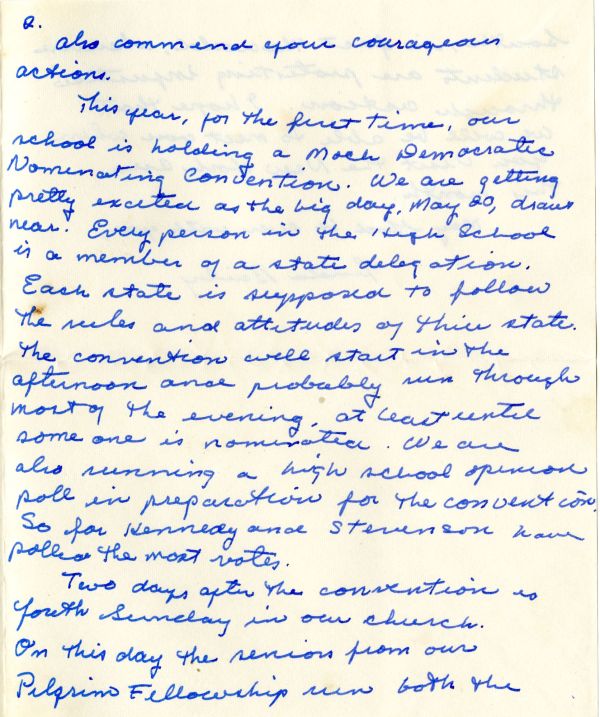 2.
also commend your courageous
actions.
This year, for the first time, our
school is holding a Mock Democratic
Nominating Convention. We are getting
pretty excited as the big day, May 20, draws
near. Every person in the High School
is a member of a state delegation.
Each state is supposed to follow
the rules and attitudes of their state.
The convention will start in the
afternoon and probably run through
most of the evening, at least until
some one is nominated. We are
also running a high school opinion
poll in preparation for the convention.
So far Kennedy and Stevenson have
polled the most votes.
Two days after the convention is
Youth Sunday in our church.
On this day the seniors from our
Pilgrim Fellowship run both the